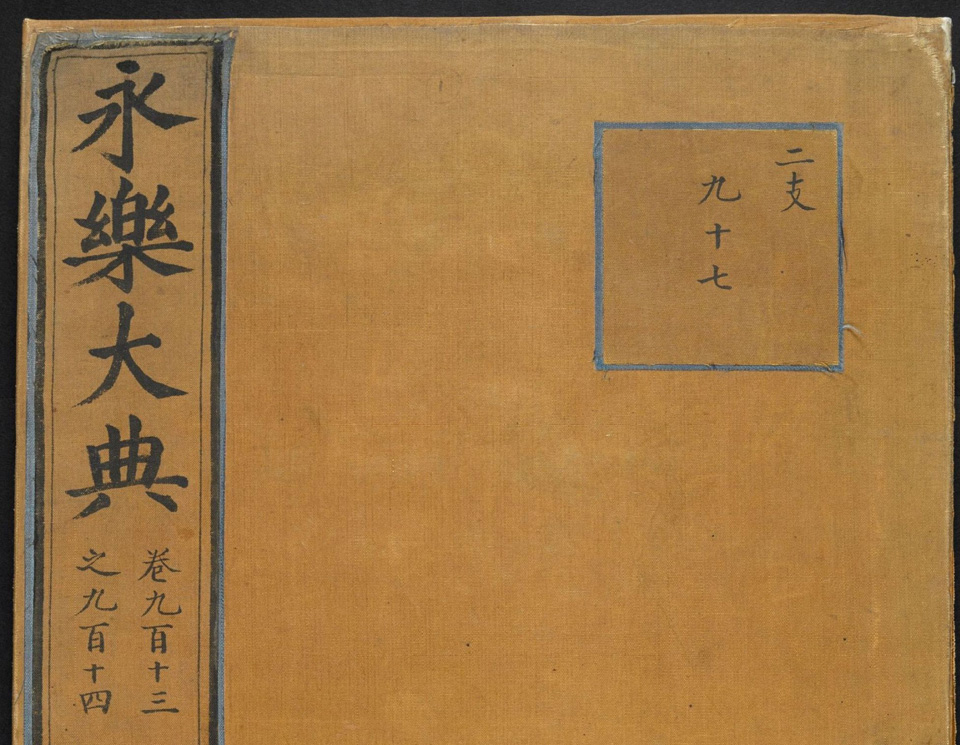 永樂大典
卷九百十三
之九百十四
二支
九十七